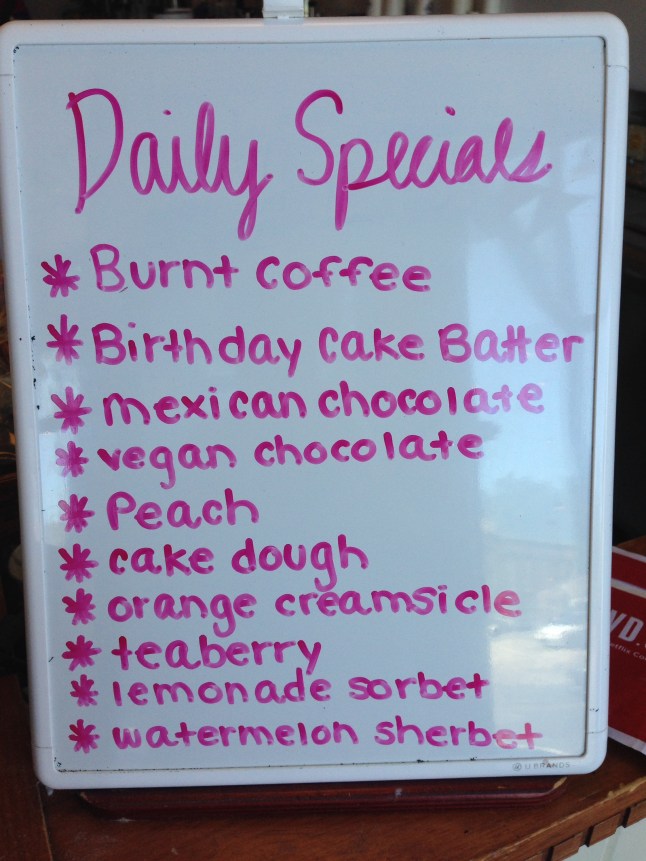 Daily Specials
* Burnt coffee
* Birthday cake Batter
* mexican chocolate
* vegan chocolate
* Peach
* cake dough
* orange creamsicle
* teaberry
* lemonade sorbet
* watermelon sherbet
U BRANDS
VD.